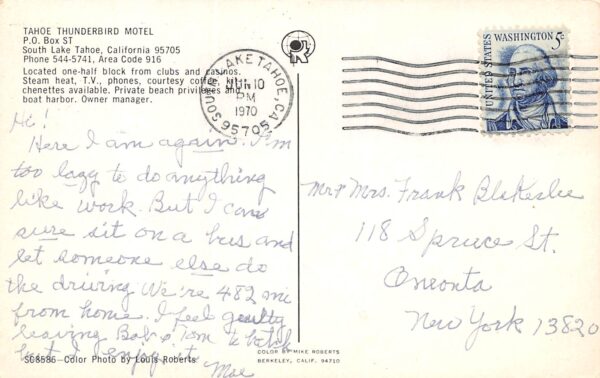 TAHOE THUNDERBIRD MOTEL
P.O. Box ST
South Lake Tahoe, California 95705
Phone 544-5741, Area Code 916
Located one-half block from clubs and casinos.
Steam heat, T.V., phones, courtesy coffee, kit-
chenettes available. Private beach privileges and
boat harbor. Owner manager.
Hi!
Here I am again. I'm
too lazy to do anything
like work. But I can
sure sit on a bus and
let someone else do
the driving. We're 482 mi
from home. I feel guilty
leaving Bob & Tom to
but I enjoy it.
Mae
SC8586-Color Photo by Louis Roberts
COLOR BY MIKE ROBERTS
BERKELEY, CALIF. 94710
SOUTH LAKE TAHOE, CA
JUN 10
PM
1970
95705
UNITED STATES
WASHINGTON 5c
Mr & Mrs. Frank Blakeslee
118 Spruce St.
Oneonta
New York 13820